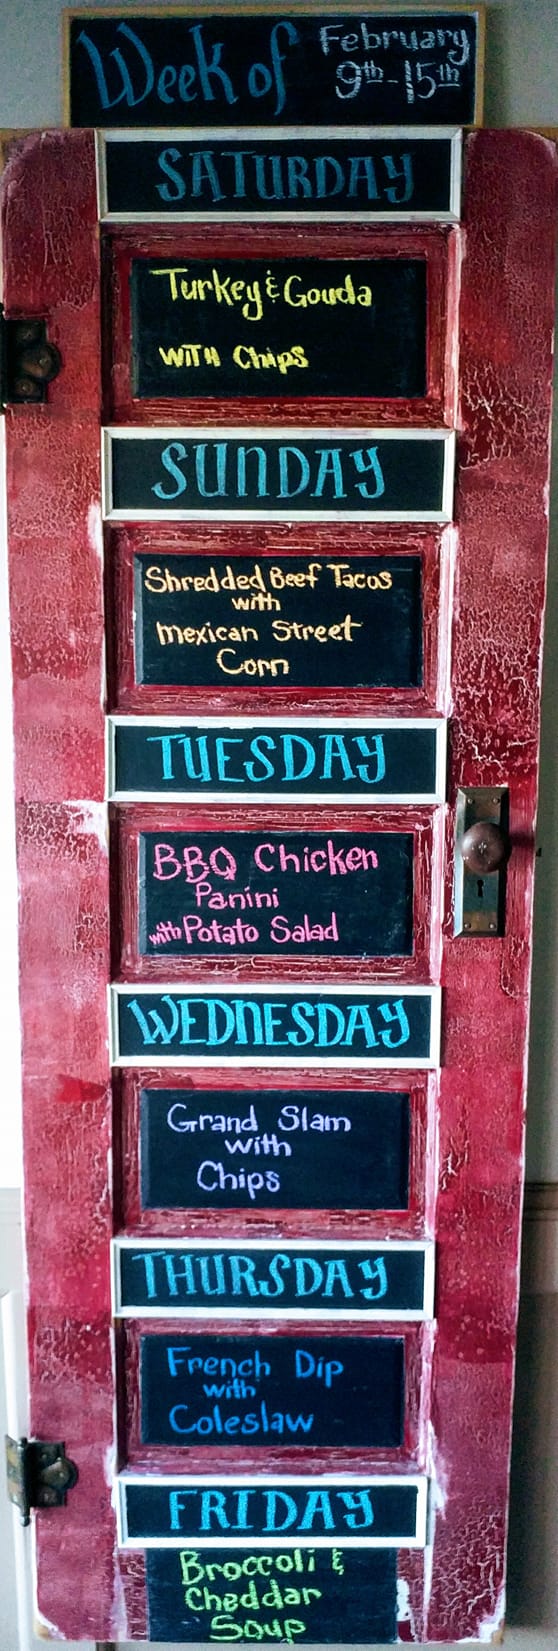 Week of
February
9th-15th
SATURDAY
Turkey & Gouda
WITH Chips
SUNDAY
Shredded Beef Tacos
with
mexican Street
Corn
TUESDAY
BBQ Chicken
Panini
with Potato Salad
WEDNESDAY
Grand Slam
with
Chips
THURSDAY
French Dip
with
Coleslaw
FRIDAY
Broccoli &
Cheddar
Soup